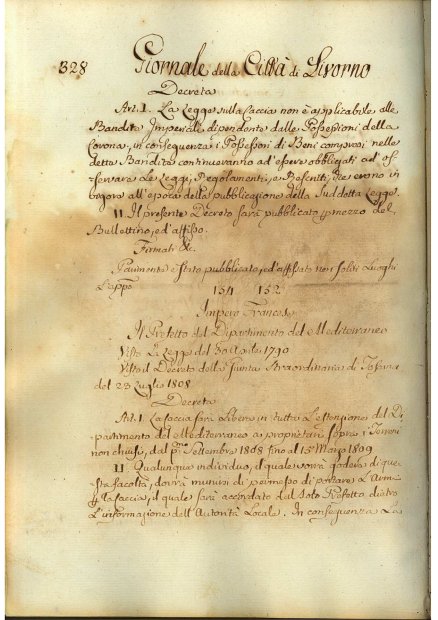 328 Giornale della Città di Livorno
Decreta
Art. I. La Legge sulla Caccia non è applicabile alle
Bandite Imperiale dipendente dalle Possessioni della
Corona; in consequenza i Possessori di Beni compresi nelle
dette Bandita continueranno ad essere obbligati ad os-
servare Le Leggi, Regolamenti, e Rescritti, che erono in
vegora all'epoca della pubblicazione della Suddetta Legge.
II. Il presente Decreto sarà pubblicato p mezzo del
Bullettino, ed affisso.
Firmati &c.
è stato pubblicato, ed affissato nei soliti Luoghi
154 152
Impero Francese
Il Prefetto del Dipartimento del Mediterraneo
Vista La Legge del 30 Aprile 1790
Visto il Decreto della Giunta Straordinaria di Toscana
del 23 Luglio 1808
Decreta
Art. I. La Caccia sarà Libera in tutta L'estenzione del Di-
partimento del Mediterraneo a proprietari sopra i Terreni
non chiusi, dal pmo Settembre 1808 fino al 15 Marzo 1809
II. Qualunque individuo, il quale vorrà godere di que-
sta facoltà, dovrà munirsi di permesso di portare L'Armi
p la Caccia, il quale sarà accordato dal Soto Prefetto dietro
L'informazione dell'Autorità Locale. In consequenza La